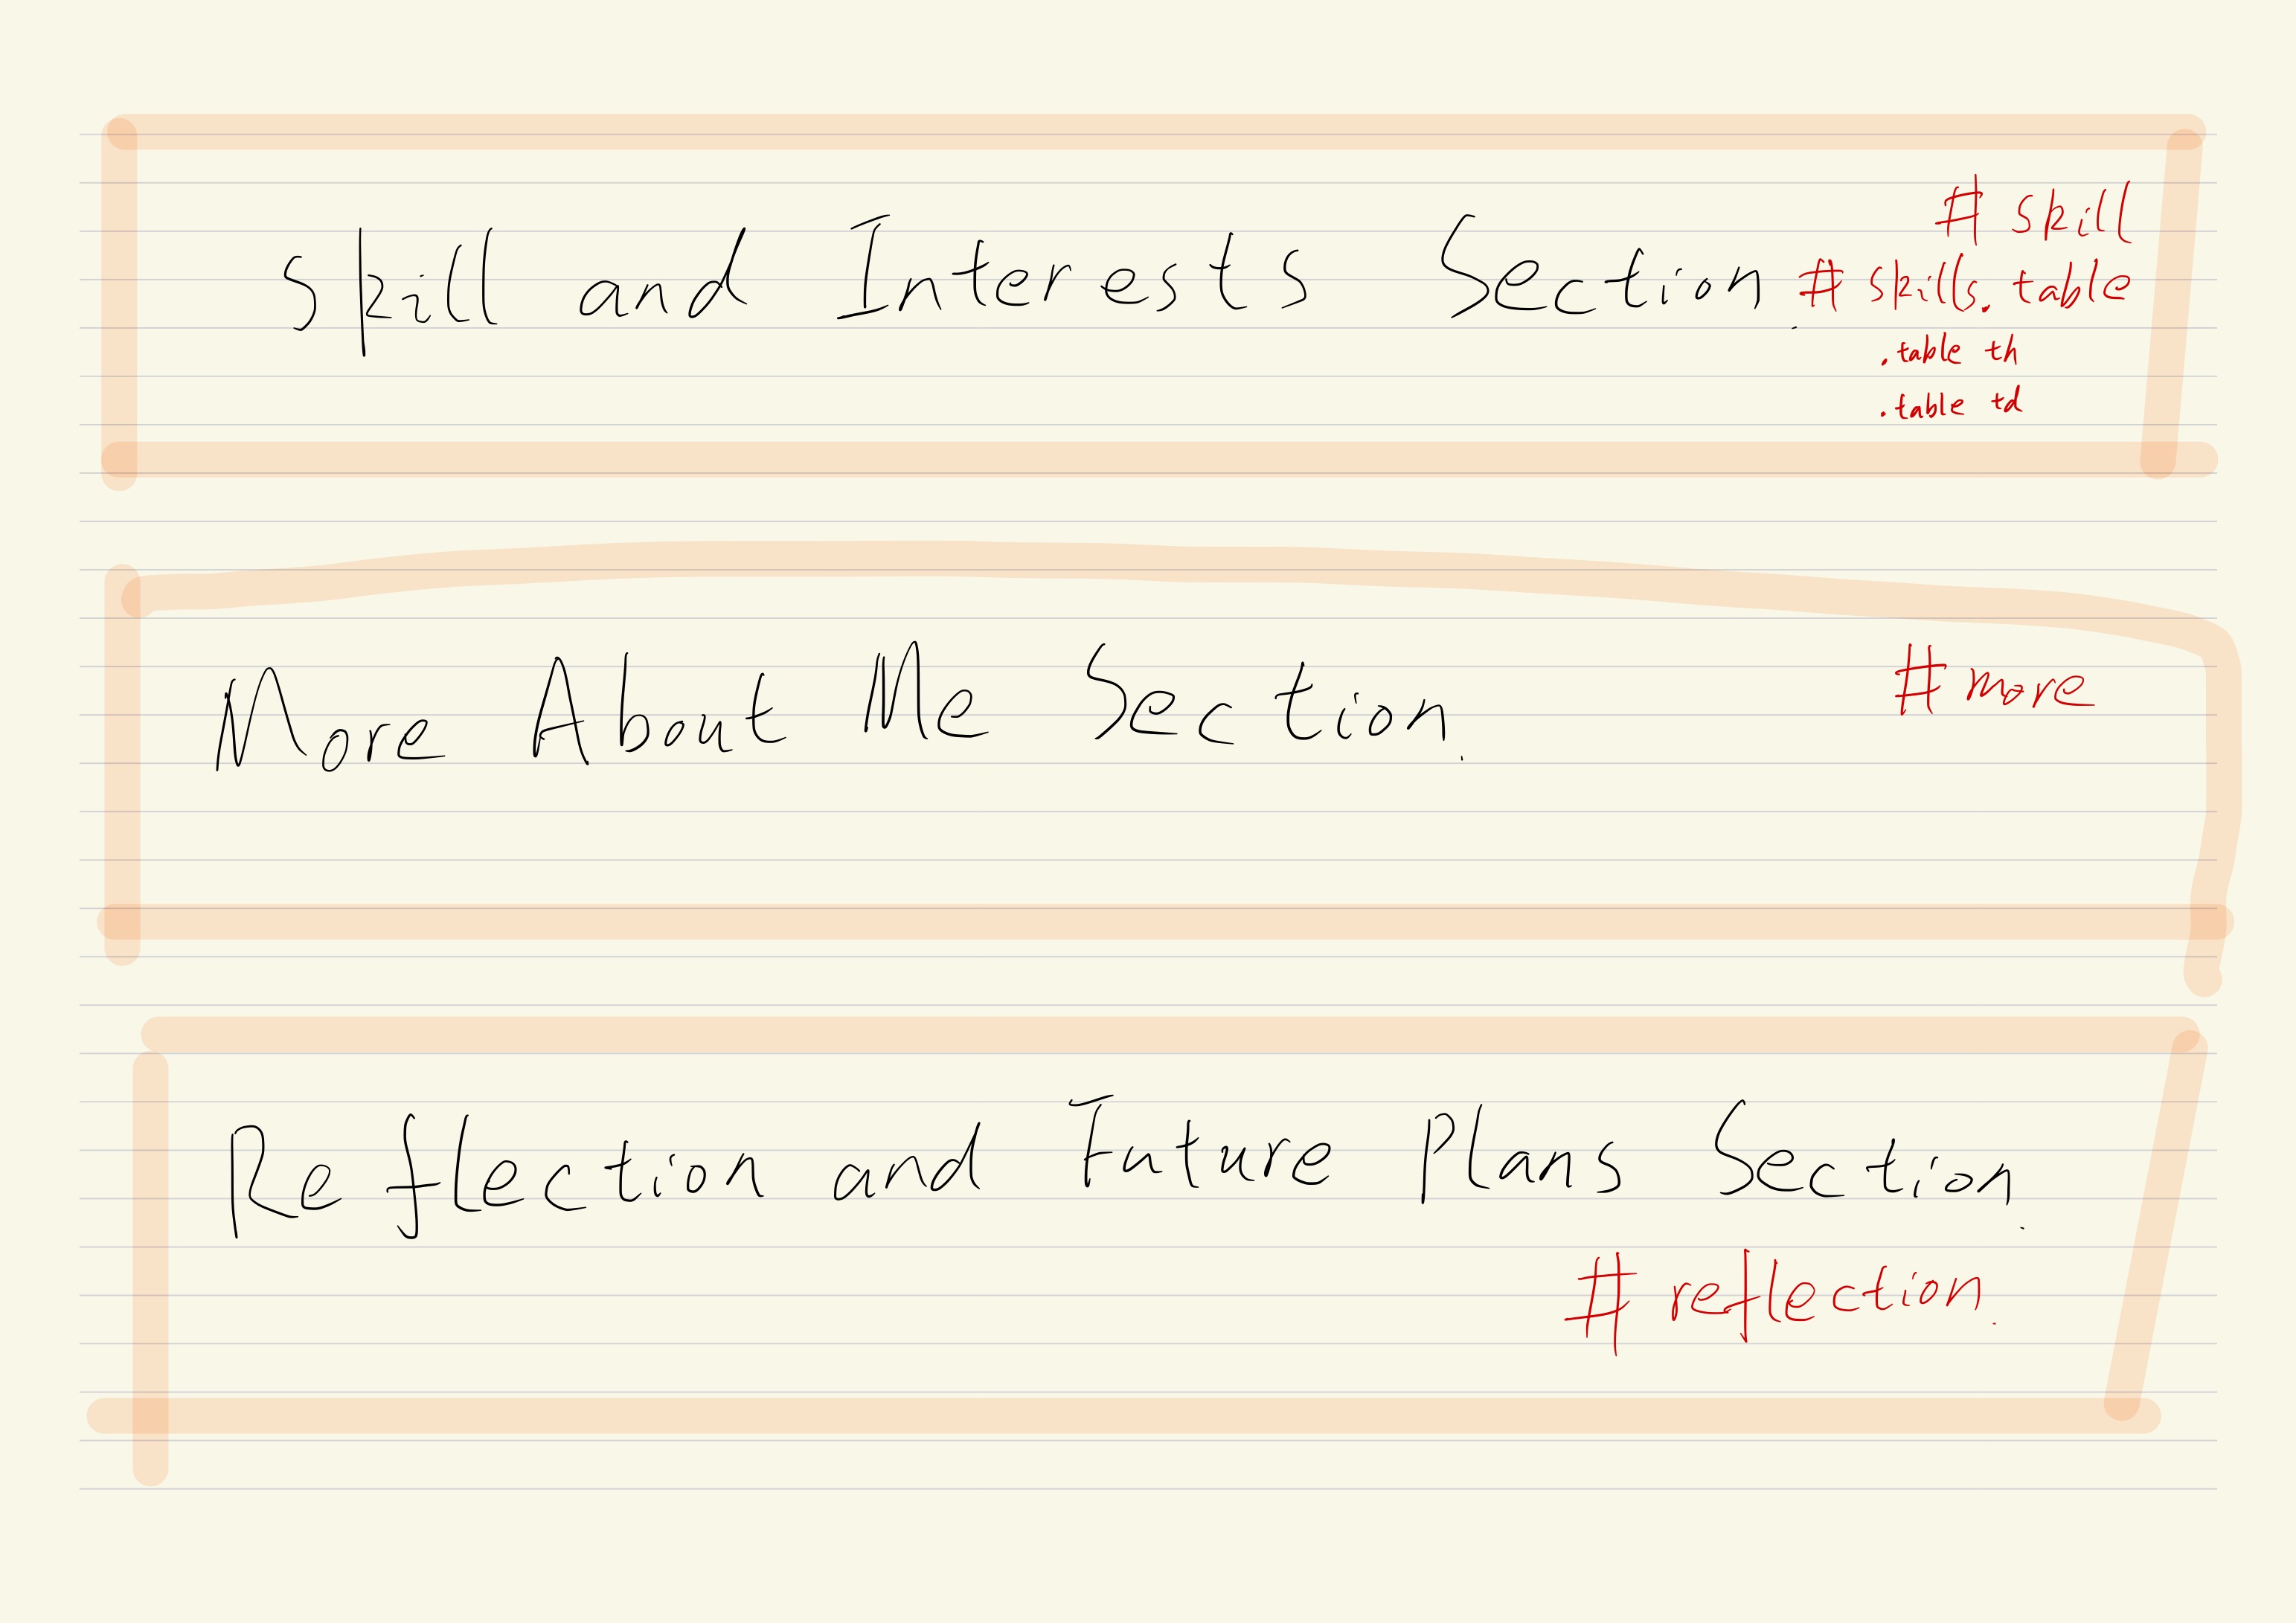 # skill
Skill and Interests Section.
# skills.table
.table th
.table td
More About Me Section.
# more
Reflection and Future Plans Section.
# reflection.